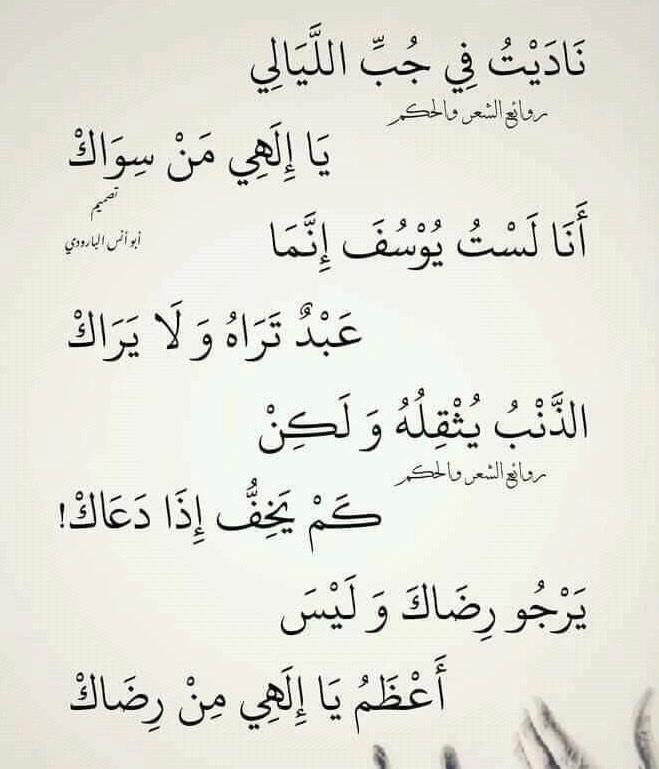 نَادَيْتُ فِي جُبِّ اللَّيَالِي
روائع الشعر والحكم
يَا إِلَهِي مَنْ سِوَاكْ
تصميم
أبو أنس البارودي
أَنَا لَسْتُ يُوْسُفَ إِنَّمَا
عَبْدٌ تَرَاهُ وَ لَا يَرَاكْ
الذَّنْبُ يُثْقِلُهُ وَ لَكِنْ
روائع الشعر والحكم
كَمْ يَخِفُّ إِذَا دَعَاكْ!
يَرْجُو رِضَاكَ وَ لَيْسَ
أَعْظَمُ يَا إِلَهِي مِنْ رِضَاكْ